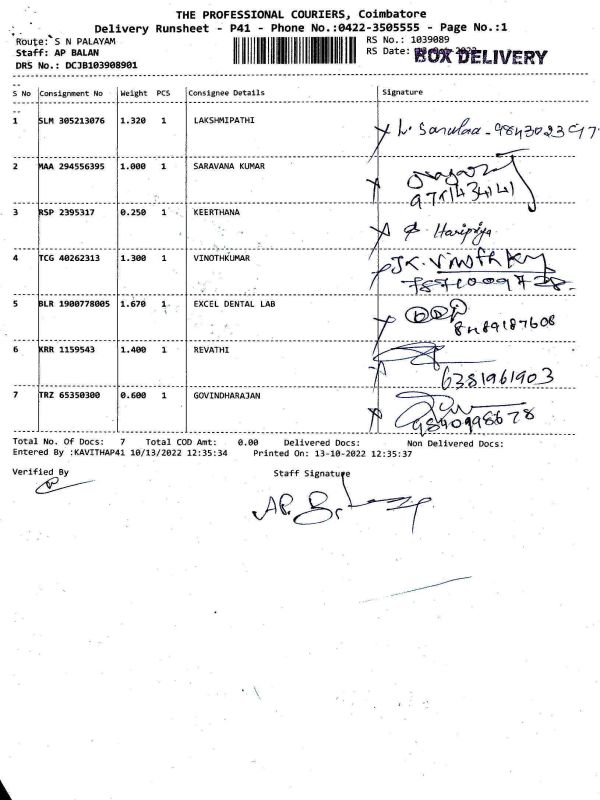 THE PROFESSIONAL COURIERS, Coimbatore
Delivery Runsheet - P41 - Phone No.:0422-3505555 - Page No.:1
Route: S N PALAYAM
RS No.: 1039089
Staff: AP BALAN
RS Date:
BOX DELIVERY
DRS No.: DCJB103908901
S No Consignment No Weight PCS Consignee Details Signature
1 SLM 305213076 1.320 1 LAKSHMIPATHI
2 MAA 294556395 1.000 1 SARAVANA KUMAR
3 RSP 2395317 0.250 1 KEERTHANA Haripriya
4 TCG 40262313 1.300 1 VINOTHKUMAR
5 BLR 1900778005 1.670 1 EXCEL DENTAL LAB
8489187608
6 KRR 1159543 1.400 1 REVATHI
6381961903
7 TRZ 65350300 0.600 1 GOVINDHARAJAN
9840998678
Total No. Of Docs: 7 Total COD Amt: 0.00 Delivered Docs: Non Delivered Docs:
Entered By :KAVITHAP41 10/13/2022 12:35:34 Printed On: 13-10-2022 12:35:37
Verified By Staff Signature